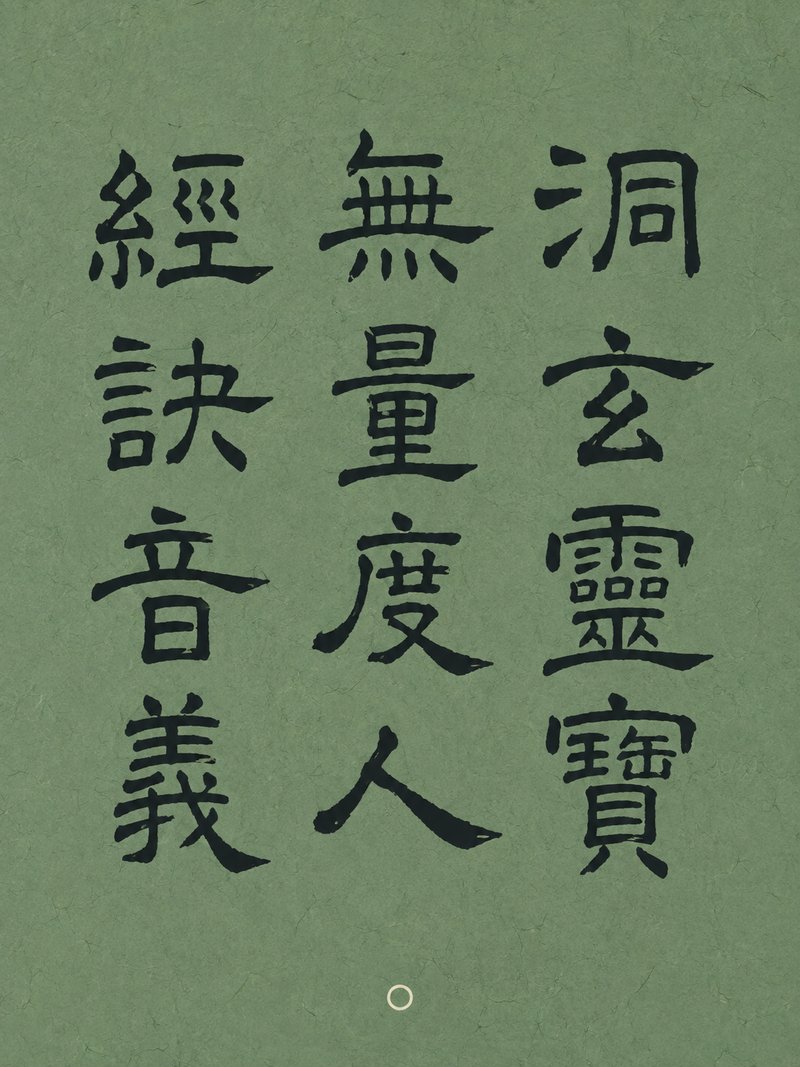 洞玄靈寶
無量度人
經訣音義